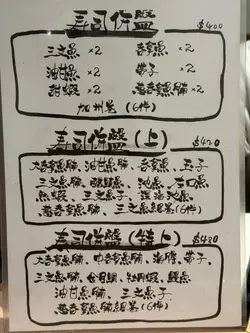 壽司併盤 $400
三文魚 ×2 吞拿魚 ×2
油甘魚 ×2 帶子 ×2
甜蝦 ×2 蔥吞拿魚腩 ×2
加州卷 (6件)
壽司併盤 (上) $420
大吞拿魚腩、油甘魚腩、吞拿魚、玉子
三文魚腩、醋鯖魚、池魚、左口魚
魚蝦、三文魚子、深海池魚
蔥吞拿魚腩、三文魚細卷 (6件)
壽司併盤 (特上) $480
大吞拿魚腩、中吞拿魚腩、海膽、帶子、
三文魚腩、金目鯛、牡丹蝦、鰻魚
油甘魚腩、三文魚子
蔥吞拿魚腩細卷 (6件)